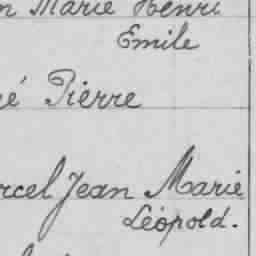 n Marie Henri
Emile
é Pierre
rcel Jean Marie
Léopold.